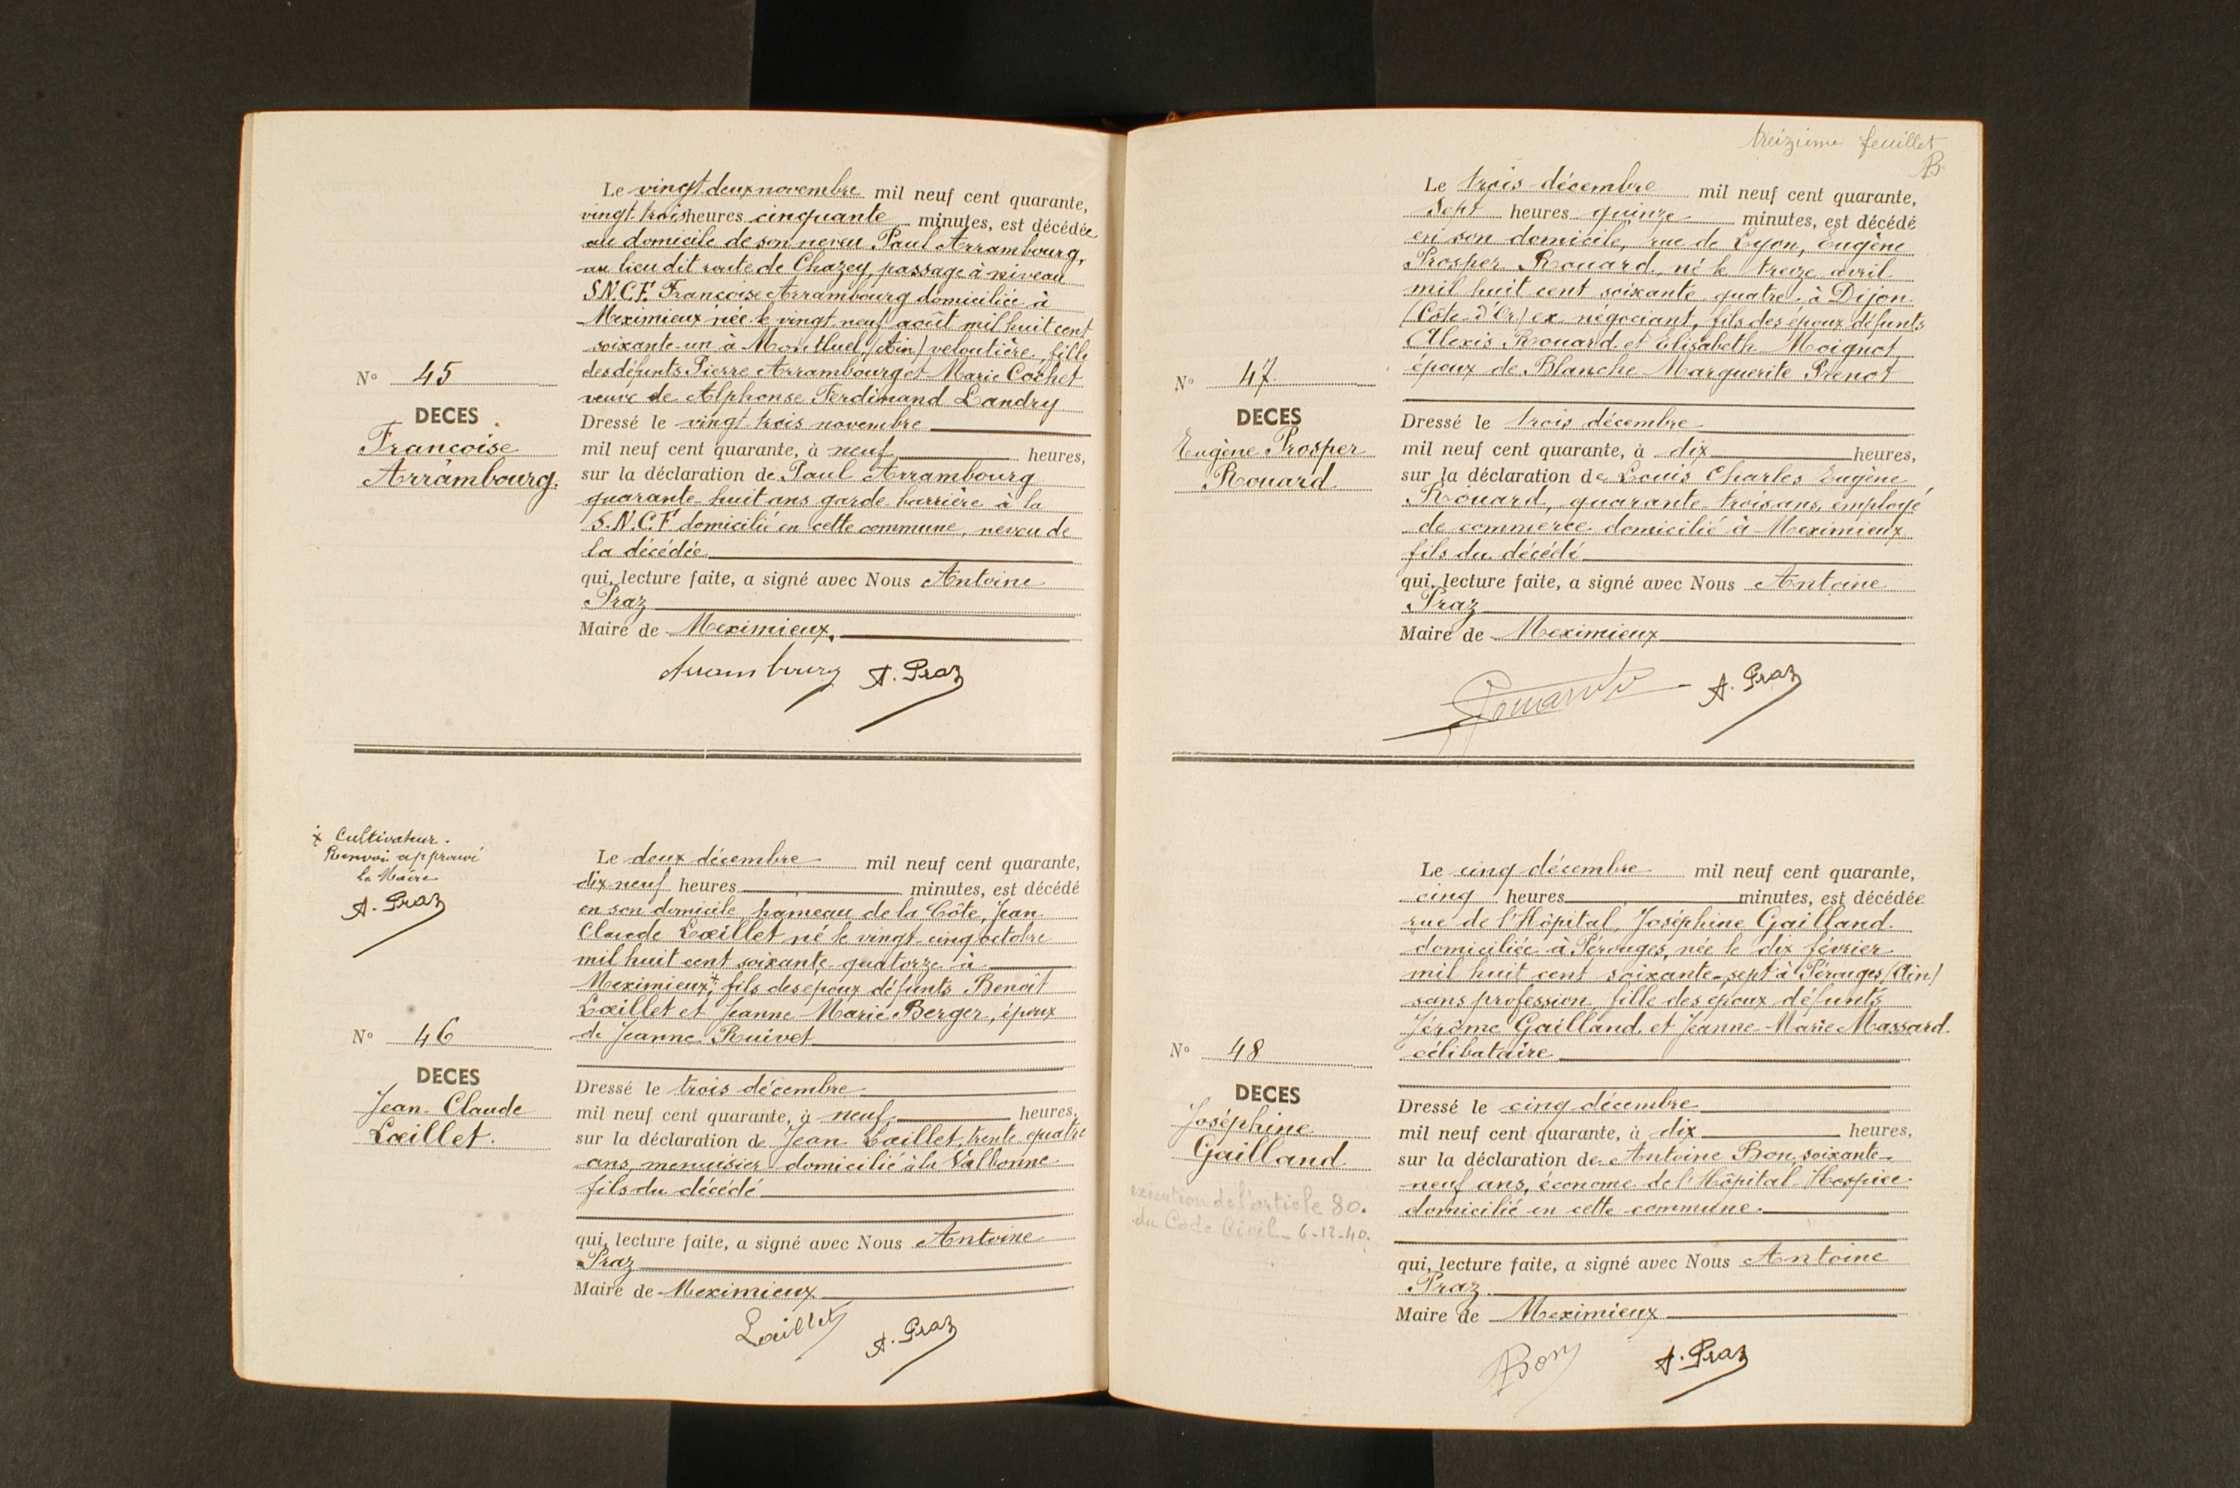 Le vingt deux novembre mil neuf cent quarante,
vingt trois heures cinquante minutes, est décédée
au domicile de son neveu Paul Arrambourg,
au lieu dit route de Chazey, passage à niveau
S.N.C.F. Françoise Arrambourg domiciliée à
Meximieux née le vingt neuf août mil huit cent
soixante-un à Montluel (Ain) veloutière, fille
des défunts Pierre Arrambourg et Marie Cochet
veuve de Alphonse Ferdinand Landry
N° 45
DECES
Francoise
Arrambourg.
Dressé le vingt trois novembre
mil neuf cent quarante, à neuf heures,
sur la déclaration de Paul Arrambourg
quarante-huit ans garde barrière à la
S.N.C.F domicilié en cette commune, neveu de
la décédée
qui, lecture faite, a signé avec Nous Antoine
Praz
Maire de Meximieux.
Arrambourg A. Praz
x Cultivateur.
Renvoi approuvé
le Maire
A. Praz
Le deux décembre mil neuf cent quarante,
dix neuf heures minutes, est décédé
en son domicile hameau de la Côte, Jean
Claude Lœillet né le vingt-cinq octobre
mil huit cent soixante quatorze à
Meximieux x, fils des époux défunts Benoît
Lœillet et Jeanne Marie Berger, époux
de Jeanne Ruivet
N° 46
DECES
Jean-Claude
Lœillet.
Dressé le trois décembre
mil neuf cent quarante, à neuf heures,
sur la déclaration de Jean Lœillet, trente quatre
ans, menuisier domicilié à la Valbonne
fils du décédé
qui, lecture faite, a signé avec Nous Antoine
Praz
Maire de Meximieux
Lœillet A. Praz
treizième feuillet
Le trois décembre mil neuf cent quarante,
Sept heures quinze minutes, est décédé
en son domicile, rue de Lyon, Eugène
Prosper Rouard, né le treize avril
mil huit cent soixante-quatre à Dijon
(Côte d'Or) ex-négociant, fils des époux défunts
Alexis Rouard et Elisabeth Moignot,
époux de Blanche Marguerite Prenot
N° 47
DECES
Eugène Prosper
Rouard
Dressé le trois décembre
mil neuf cent quarante, à dix heures,
sur la déclaration de Louis Charles Eugène
Rouard, quarante-trois ans, employé
de commerce domicilié à Meximieux
fils du décédé
qui, lecture faite, a signé avec Nous Antoine
Praz
Maire de Meximieux
A. Praz
Le cinq décembre mil neuf cent quarante,
cinq heures minutes, est décédée
rue de l'Hôpital, Joséphine Gailland
domiciliée à Pérouges, née le dix février
mil huit cent soixante-sept à Pérouges (Ain)
sans profession, fille des époux défunts
Jérôme Gailland et Jeanne-Marie Massard
célibataire
N° 48
DECES
Joséphine
Gailland
exécution de l'article 80.
du Code Civil - 6-12-40.
Dressé le cinq décembre
mil neuf cent quarante, à dix heures,
sur la déclaration de Antoine Bon, soixante-
neuf ans, économe de l'Hôpital-Hospice
domicilié en cette commune.
qui, lecture faite, a signé avec Nous Antoine
Praz.
Maire de Meximieux
Bon A. Praz